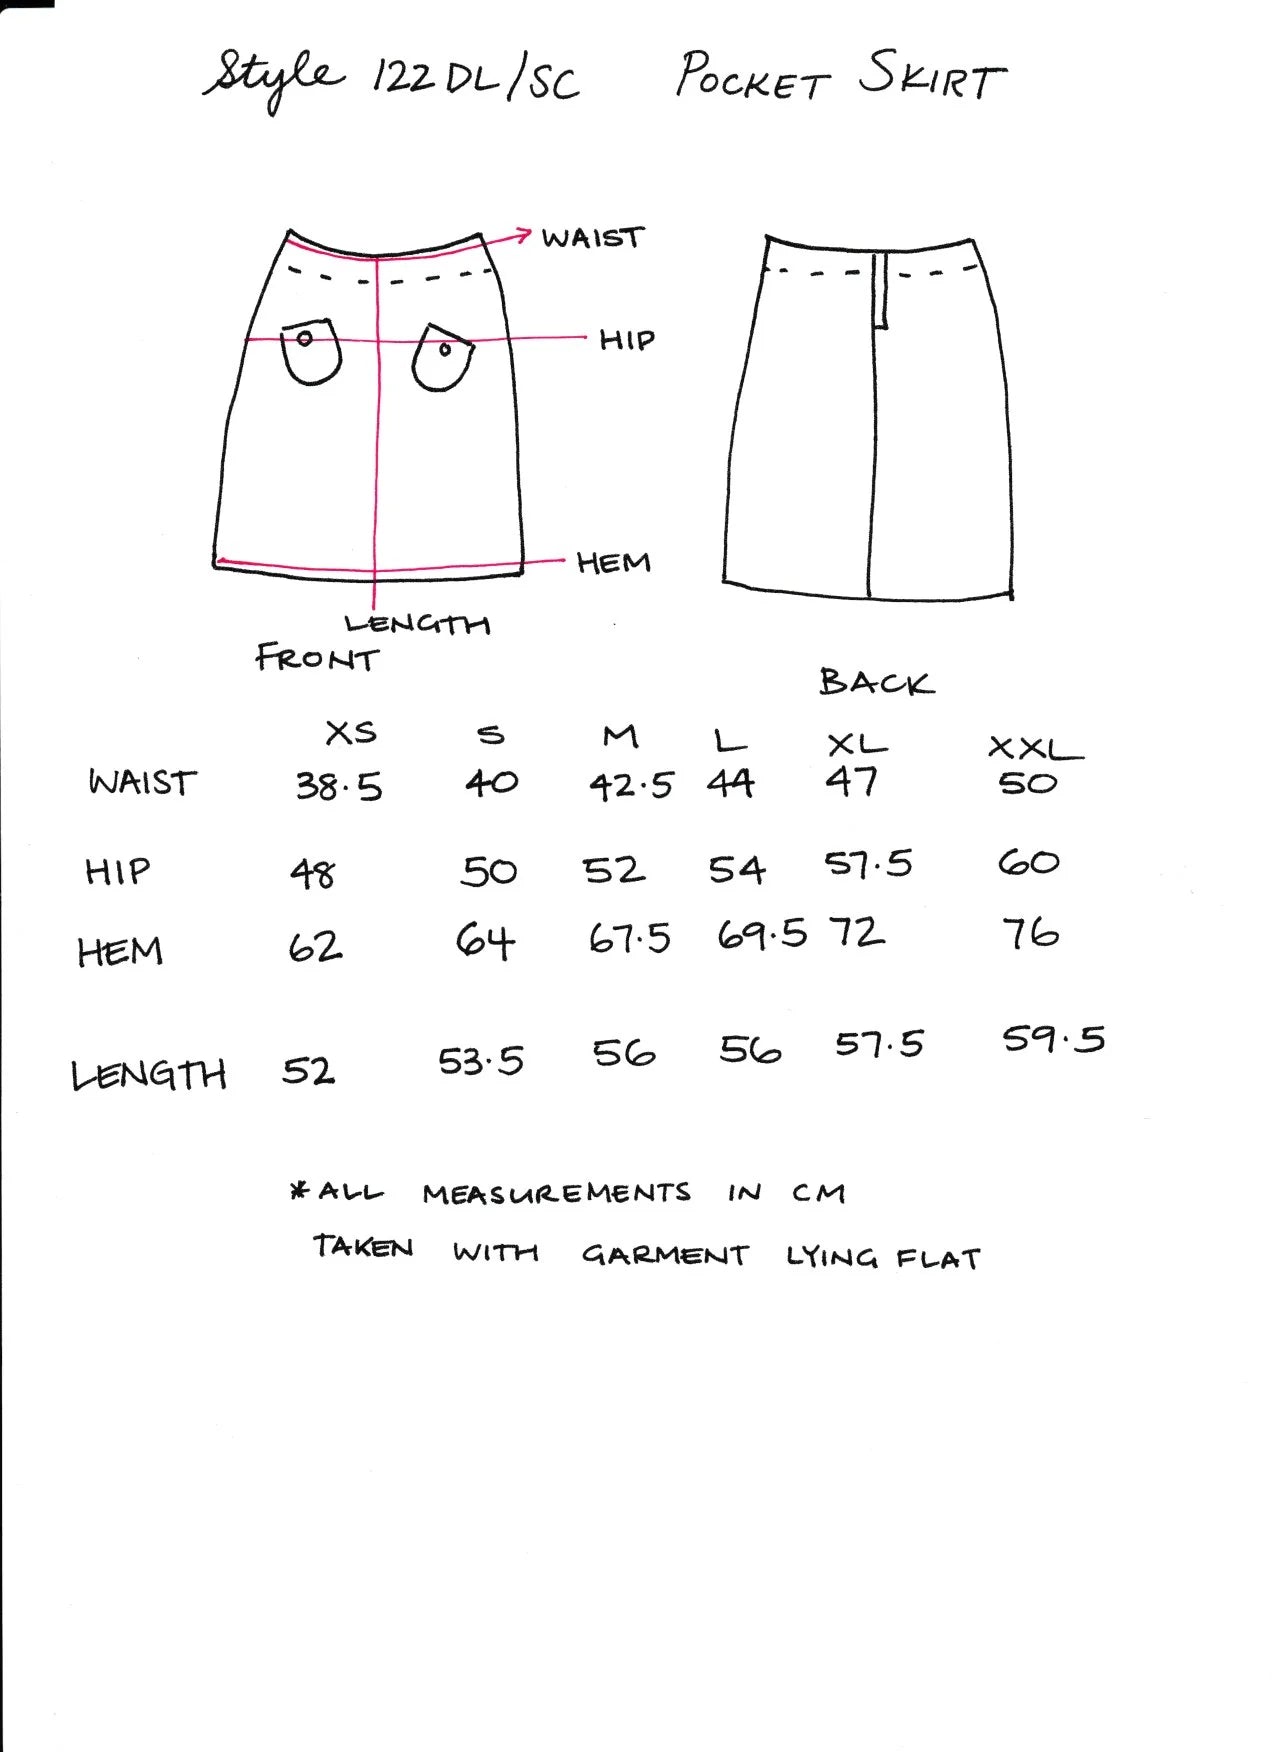 Style 122DL/SC POCKET SKIRT
WAIST
HIP
HEM
LENGTH
FRONT
BACK
XS S M L XL XXL
WAIST 38.5 40 42.5 44 47 50
HIP 48 50 52 54 57.5 60
HEM 62 64 67.5 69.5 72 76
LENGTH 52 53.5 56 56 57.5 59.5
*ALL MEASUREMENTS IN CM
TAKEN WITH GARMENT LYING FLAT